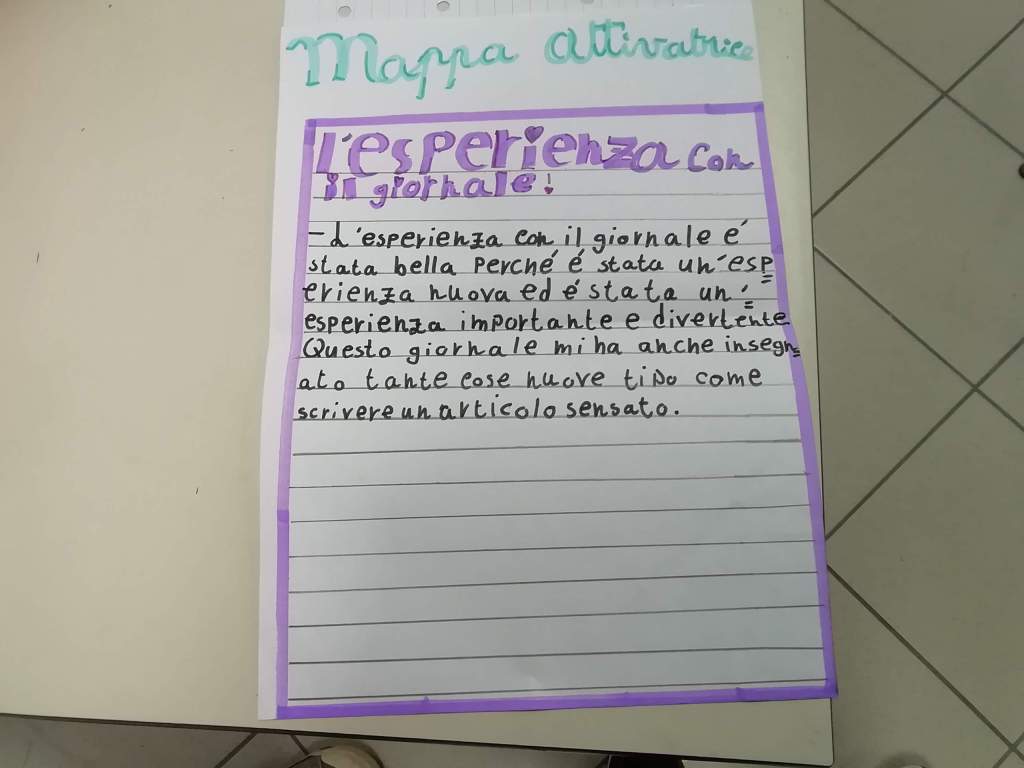 Mappa attivatrice
L'esperienza con
il giornale!
- L'esperienza con il giornale é
stata bella perché é stata un'esp=
erienza nuova ed é stata un'=
esperienza importante e divertente
Questo giornale mi ha anche insegn=
ato tante cose nuove tipo come
scrivere un articolo sensato.